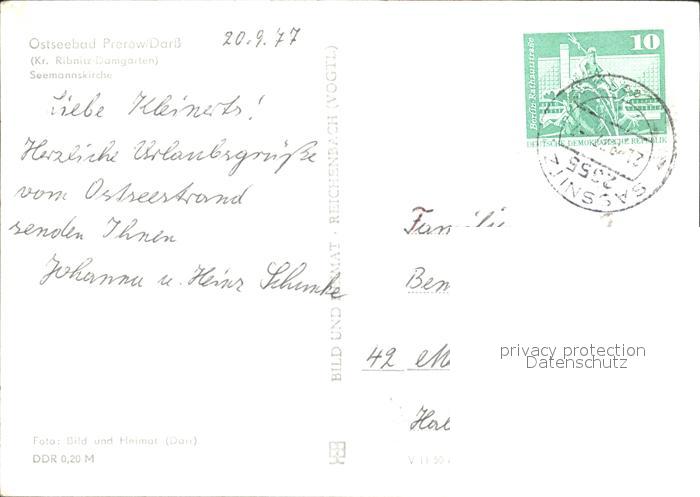 Ostseebad Prerow/Darß
(Kr. Ribnitz-Damgarten)
Seemannskirche
20.9.77
Liebe Kleinerts!
Herzliche Urlaubsgrüße
vom Ostseestrand
senden Ihnen
Johanna u. Heinz Schunke
Foto: Bild und Heimat (Darr)
DDR 0,20 M
BILD UND HEIMAT · REICHENBACH (VOGTL)
10
Berlin-Rathausstraße
DEUTSCHE DEMOKRATISCHE REPUBLIK
2355
SASSNITZ
Familie
Ben
42 Me
privacy protection
Datenschutz
V 11 50